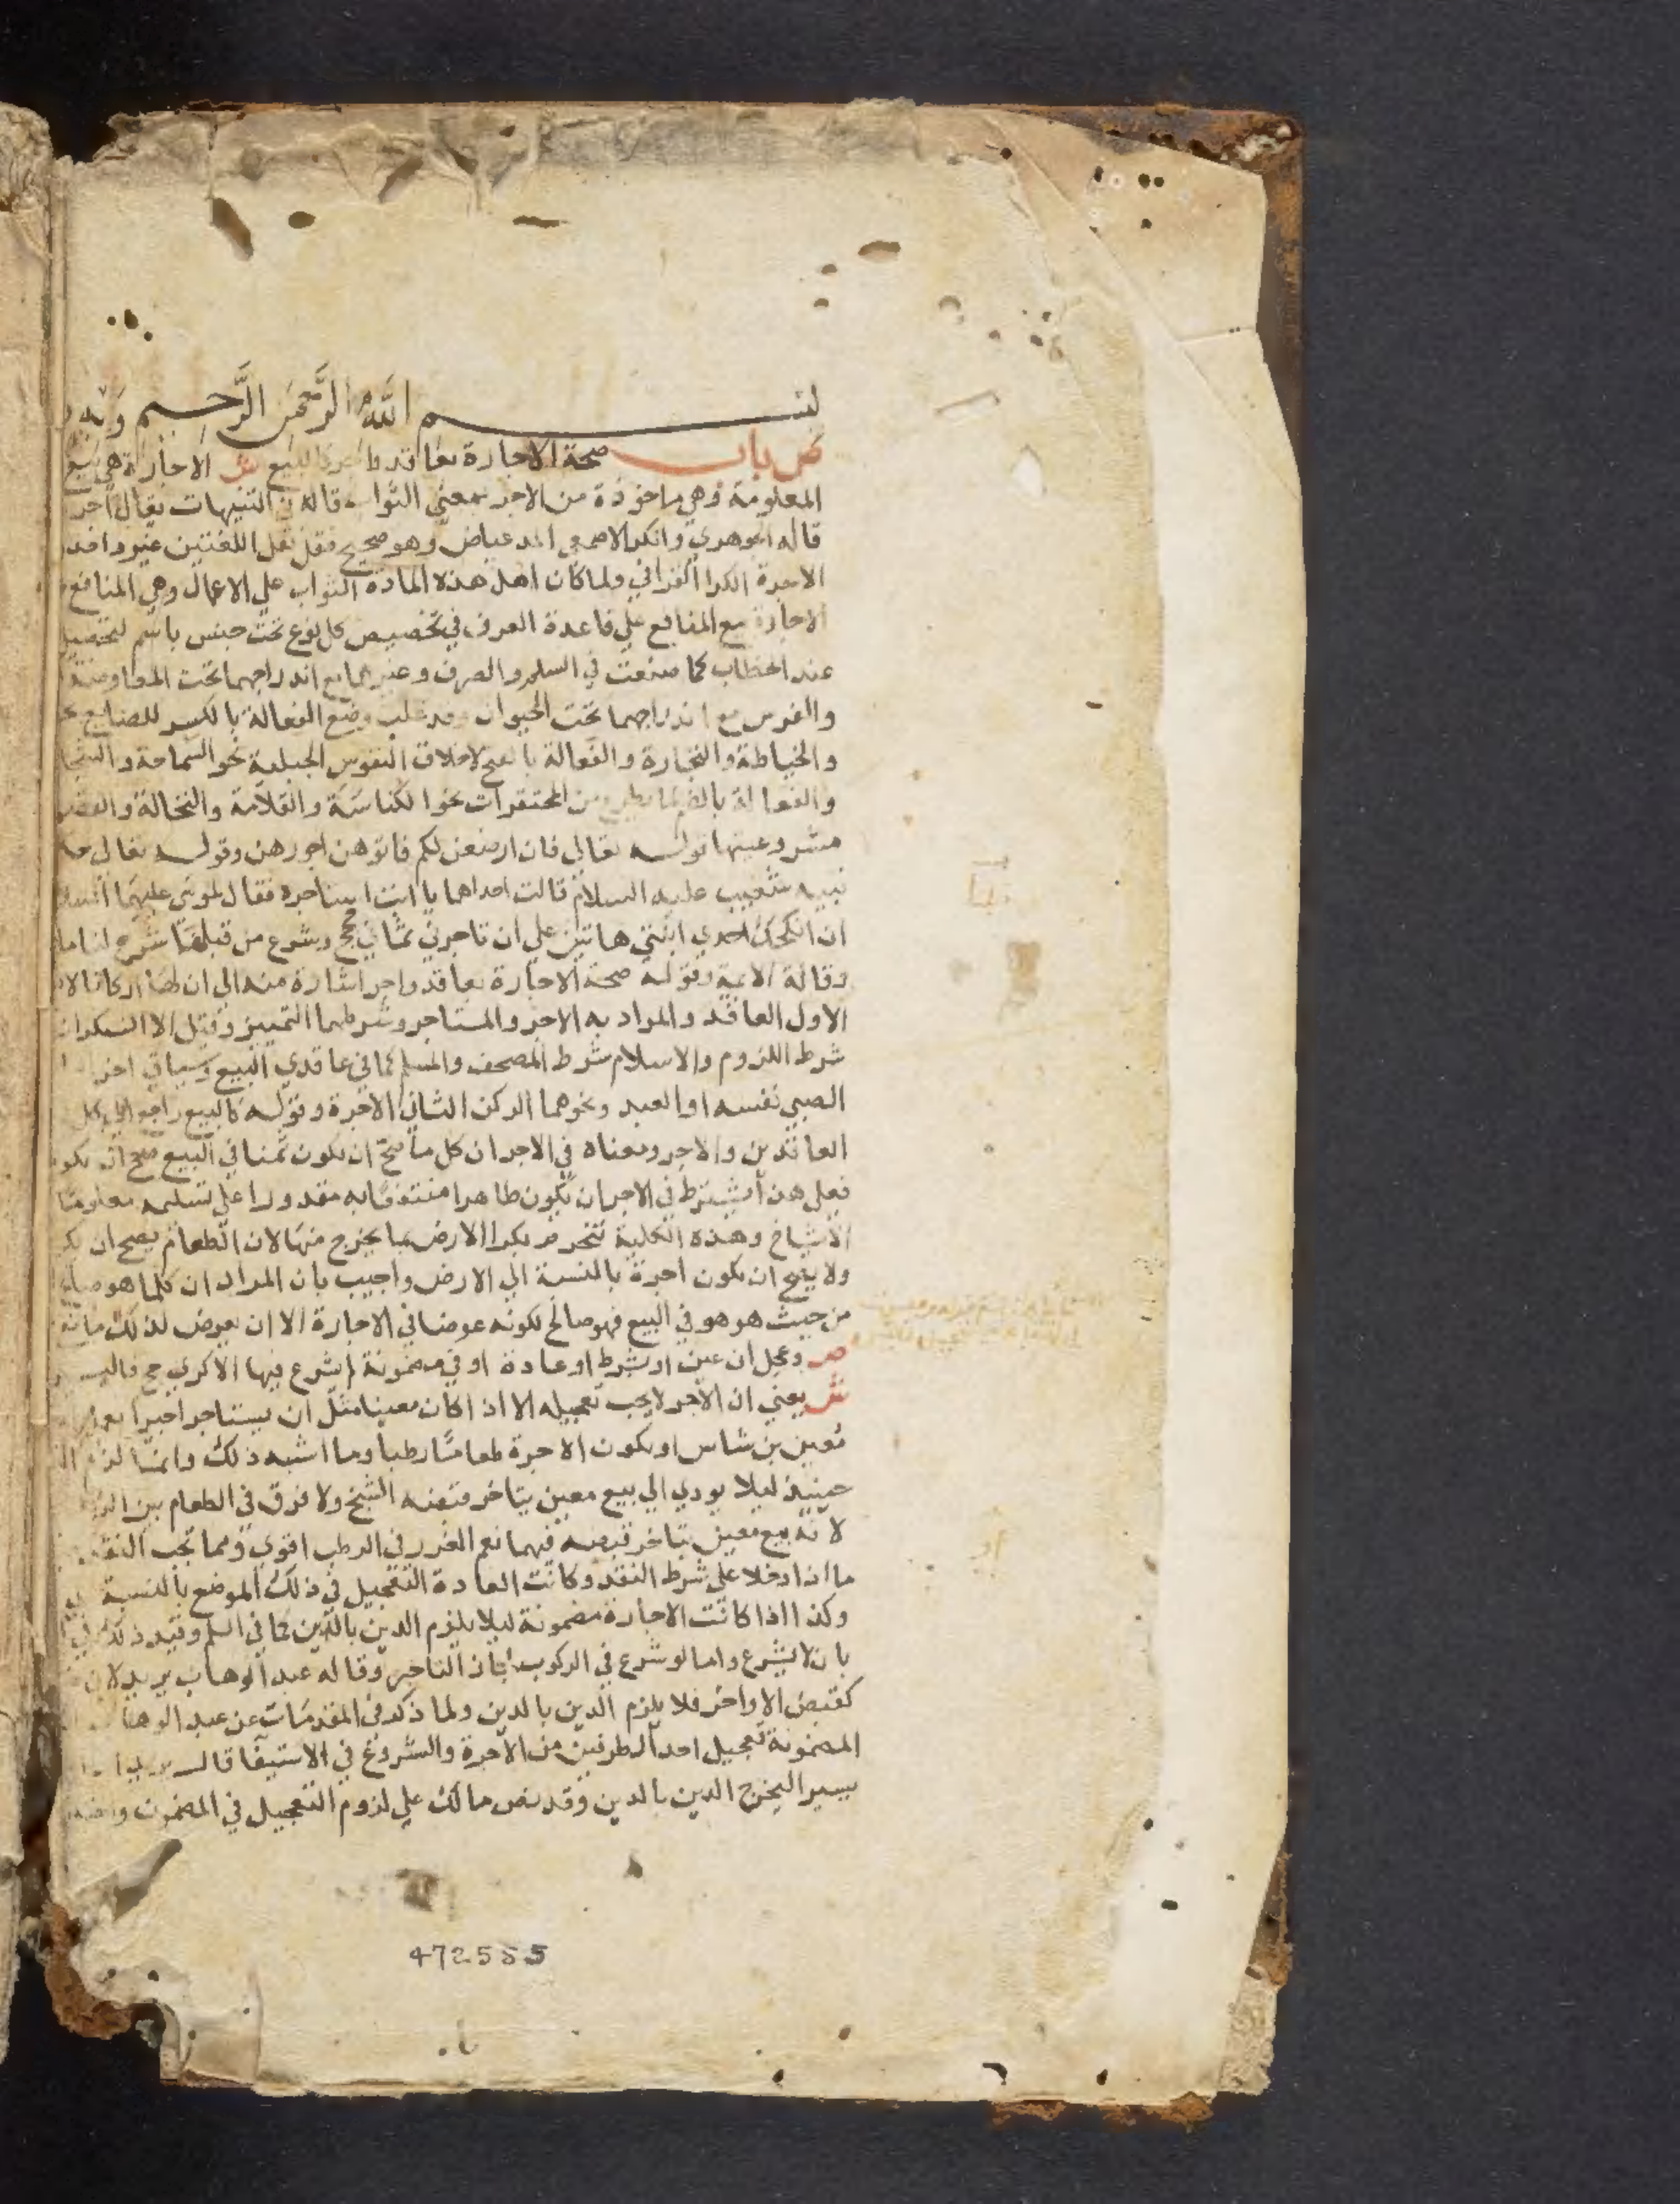 بسم الله الرحمن الرحيم وبه
ص باب صحة الاجارة بعاقد واجر كالبيع ش الاجارة هي بيع
المعلومة وهي ماخوذة من الاجر بمعني الثواب قاله في التنبيهات يقال آجر
قاله الجوهري وانكر الاصمعي المد عياض وهو صحيح فقد نقل اللغتين غير واحد
الاجرة الكرا القرافي ولما كان اصل هذه المادة الثواب علي الاعمال وهي المنافع
الاجارة مع المنافع علي قاعدة العرف في تخصيص كل نوع تحت جنس باسم ليحصل
عند الخطاب كما صنعت في السلم والصرف وغيرهما مع اندراجهما تحت المعاوضة
والفرس مع اندراجهما تحت الحيوان وقد غلب وضع الفعالة بالكسر للصنايع
والخياطة والنجارة والفعالة بالفتح لاخلاق النفوس الجبلية نحو السماحة والشجا
والفعالة بالضم لما يطرح من المحتقرات نحو الكناسة والقلامة والنخالة
مشروعيتها قوله تعالي فان ارضعن لكم فاتوهن اجورهن وقوله تعالي
نبيه شعيب عليه السلام قالت احداهما يا ابت استاجره فقال لموسي عليهما السلام
ان انكحك احدي ابنتي هاتين علي ان تاجرني ثماني حجج وشرع من قبلنا شرع لنا ما
وقاله الايمة وقوله صحة الاجارة بعاقد واجر اشارة منه الي ان لها اركانا
الاول العاقد والمراد به الاجر والمستاجر وشرطهما التمييز وقيل الا السكران
شرط اللزوم والاسلام شرط المصحف والمسلم كما في عاقدي البيع وسياتي
الصبي نفسه او العبد ونحوهما الركن الثاني الاجرة وقوله كالبيع راجع الي كل
العاقدين والاجر ومعناه في الاجر ان كل ما صح ان يكون ثمنا في البيع صح ان يكو
فعلي هذا يشترط في الاجر ان يكون طاهرا منتفعا به مقدورا علي تسليمه معلوما
الاشياخ وهذه الكلية تنخرم بكرا الارض بما يخرج منها لان الطعام يصح ان
ولا يصح ان يكون اجرة بالنسبة الي الارض واجيب بان المراد ان كلما هو صالح
من حيث هو هو في البيع فهو صالح لكونه عوضا في الاجارة الا ان يعرض لذلك مانع
ص وعجل ان عين او بشرط او عادة او في مضمونة لم يشرع فيها الا كري حج فاليسير
ش يعني ان الاجر لا يجب تعجيله الا اذا كان معينا مثل ان يستاجر اجيرا
معين بن شاس او يكون الاجرة طعاما رطبا وما اشبه ذلك وانما لزم
حينيذ ليلا يودي الي بيع معين يتاخر قبضه الشيخ ولا فرق في الطعام بين
لانه بيع معين يتاخر قبضه فيهما نعم الغرر في الرطب اقوي ومما تجب
ما اذا دخلا علي شرط النقد وكانت العادة التعجيل في ذلك الموضع بالنسبة
وكذا اذا كانت الاجارة مضمونة ليلا يلزم الدين بالدين كما في السلم وقيد ذلك
بان لا يشرع واما لو شرع في الركوب التاخير وقاله عبد الوهاب يريد لان
كقبض الاواخر فلا يلزم الدين بالدين ولما ذكر في المقدمات عن عبد الوهاب
المضمونة تعجيل احد الطرفين من الاجرة والشروع في الاستيفا قال
يسير اليخرج الدين بالدين وقد نص مالك علي لزوم التعجيل في المضمون
472585